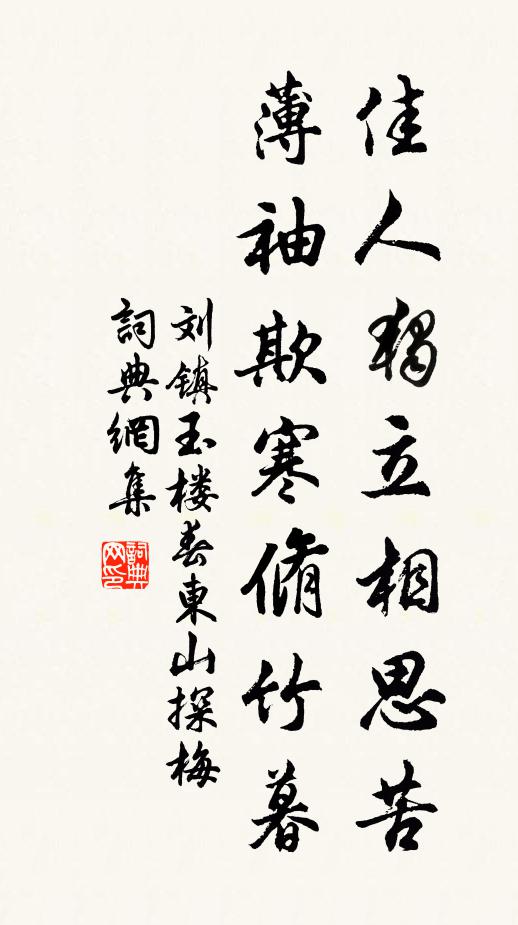 佳人獨立相思苦
薄袖欺寒脩竹暮
刘鎮玉楼春東山探梅
詞典網集
詞典网印